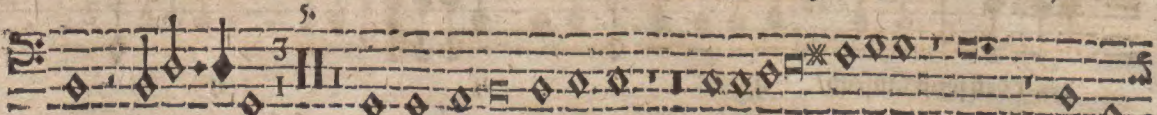 5.
3
1